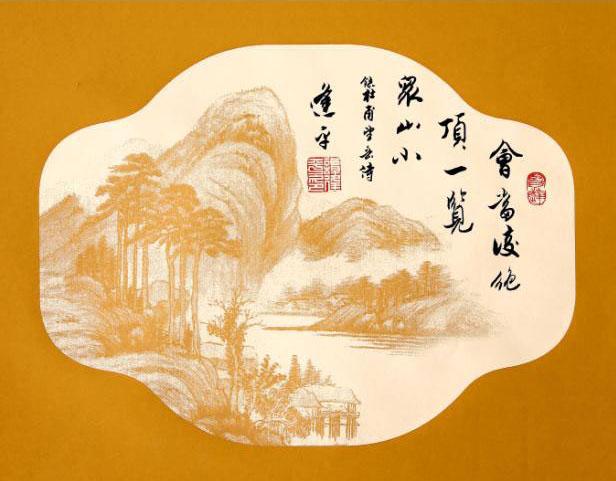 會當凌絶
頂一覽
衆山小
錄杜甫望岳詩